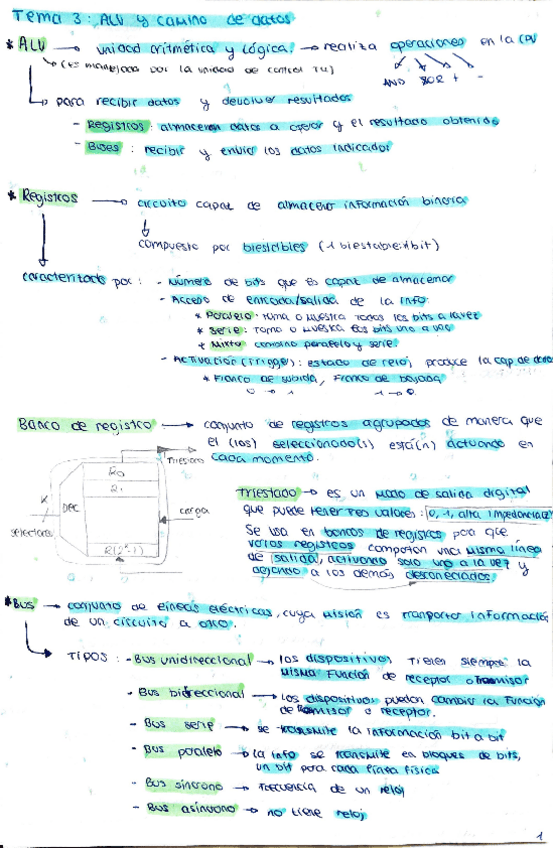 Tema 3: ALU y camino de datos
* ALU → unidad aritmética y lógica → realiza operaciones en la CPU
(es manejada por la unidad de control
AND SOR + -
→ para recibir datos y devolver resultados
- Registros: almacenan datos a operar y el resultado obtenido
- Buses: recibir y enviar los datos indicados
* Registros → circuito capaz de almacenar información binaria
↓
compuesto por biestables (1 biestable: 1 bit)
caracterizado por: - Número de bits que es capaz de almacenar
- Acceso de entrada/salida de la info:
* Paralelo: toma o muestra todos los bits a la vez
* Serie: Toma o muestra los bits uno a uno
* Mixto combina paralelo y serie.
- Activación (Trigger): estado de reloj, produce la cap de datos
* Flanco de subida, Flanco de bajada
0 → 1 1 → 0
Banco de registro → conjunto de registros agrupados de manera que
el (los) seleccionado(s) está(n) actuando en
cada momento.
Triestado
R0
R1
K
DEC
selectores
carga
R(2ᵏ-1)
Triestado → es un modo de salida digital
que puede tener tres valores: 0, 1, alta impedancia (Z)
Se usa en bancos de registros para que
varios registros compartan una misma línea
de salida, activando solo uno a la vez y
dejando a los demás desconectados.
* Bus → conjunto de líneas eléctricas, cuya misión es transportar información
de un circuito a otro.
→ TIPOS: - Bus unidireccional → los dispositivos tienen siempre la
misma función de receptor o transmisor
- Bus bidireccional → los dispositivos pueden cambiar la función
de transmisor o receptor.
- Bus serie → se transmite la información bit a bit
- Bus paralelo → la info se transmite en bloques de bits,
un bit para cada línea física
- Bus síncrono → frecuencia de un reloj
- Bus asíncrono → no tiene reloj
1